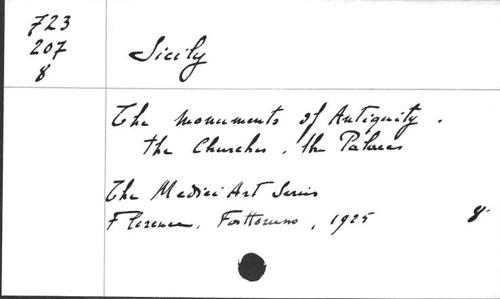 723
207
8
Sicily
The monuments of Antiquity.
the Churches, the Palaces
The Medici Art Series
Florence, Fortteruno, 1925 8°